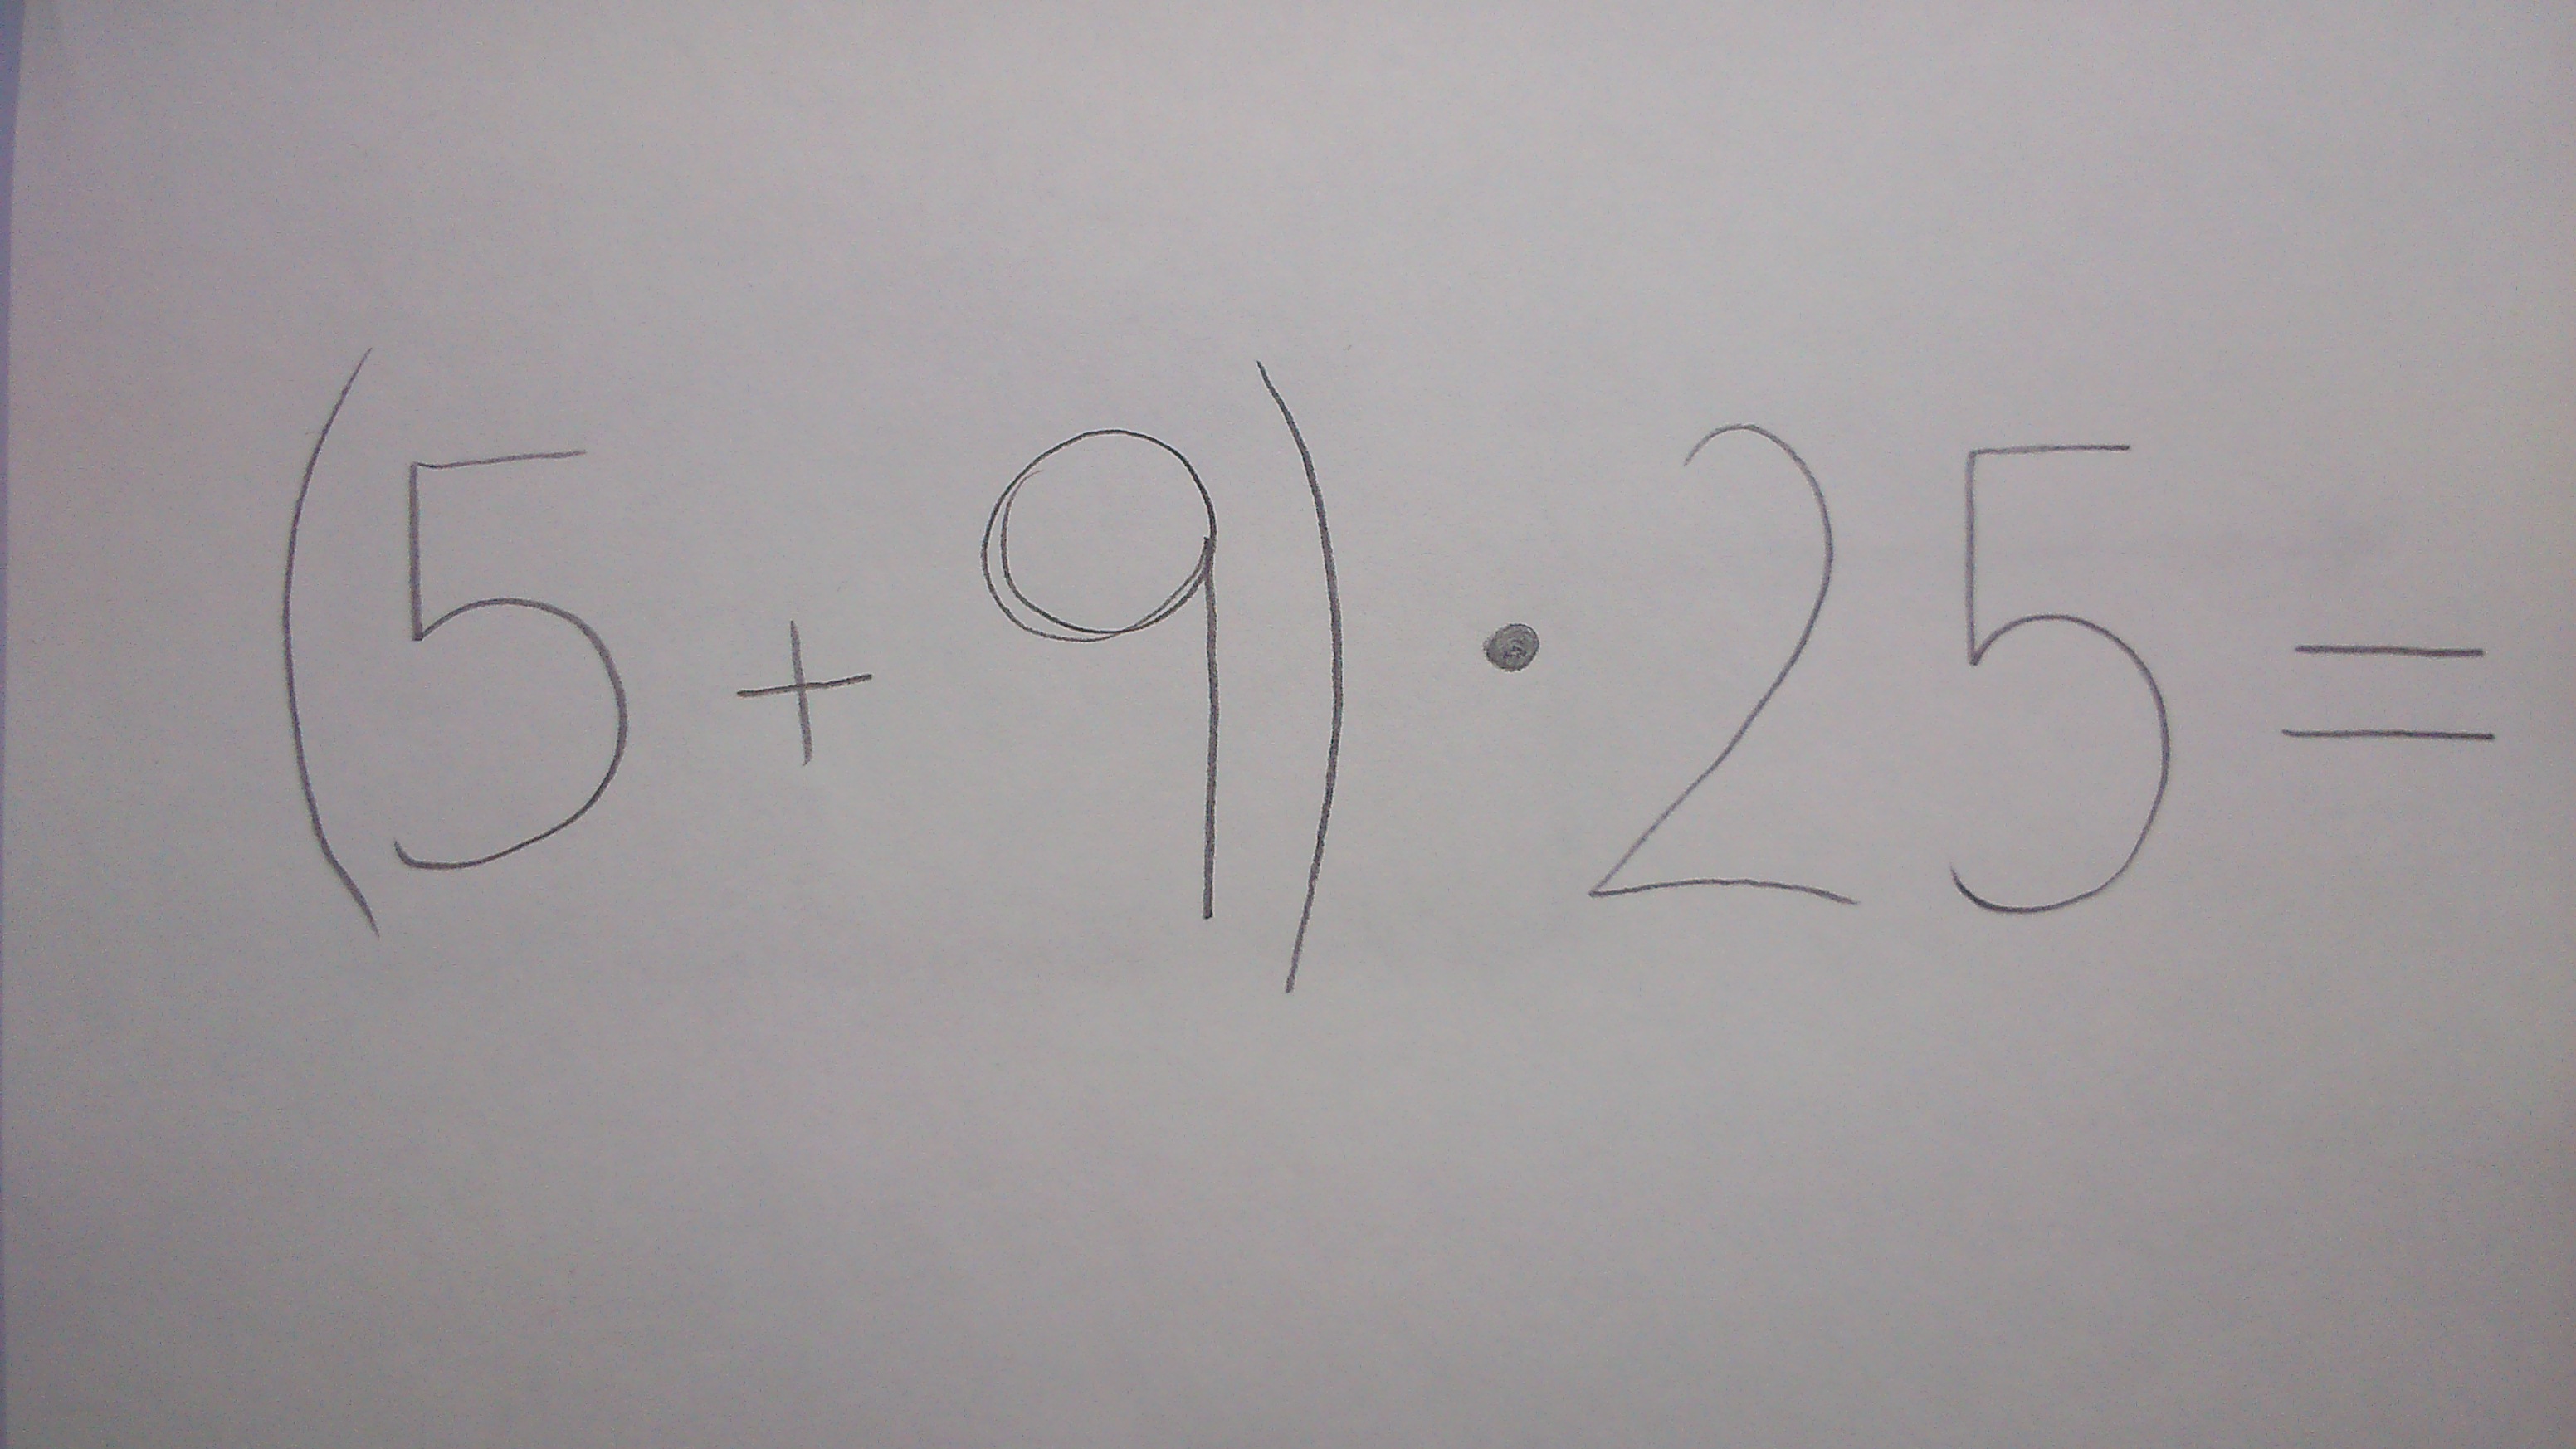 (5+9)•25=